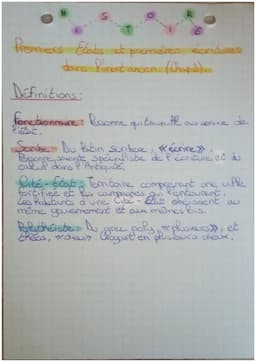 HISTOIRE
Premiers Etats et premières écritures
dans l'orient ancien. (Chap 1)
Définitions:
Fonctionnaire: Personne qui travaille au service de
l'état.
Scribe: Du latin scribere, «écrire».
Personne savante spécialiste de l'écriture et du
calcul dans l'Antiquité.
Cité-État: Territoire comprenant une ville
fortifiée et les campagnes qui l'entourent.
Les habitants d'une Cité-État obéissent au
même gouvernement et aux mêmes lois.
Polythéiste: Du grec poly, «plusieurs», et
théos, «dieu». Croyant en plusieurs dieux.